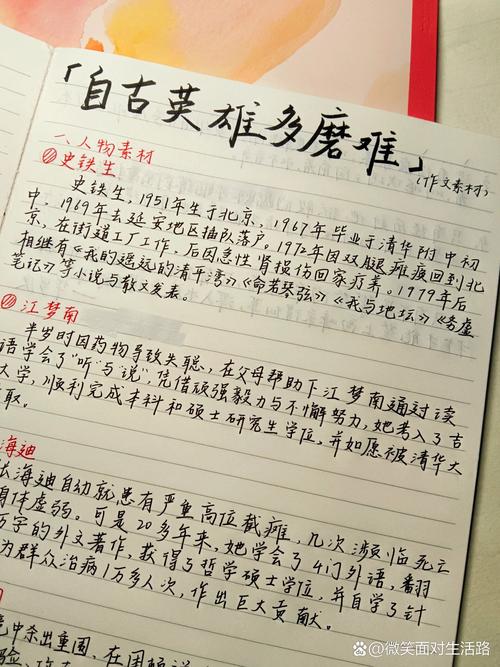 「自古英雄多磨难」
(作文素材)
一、人物素材
史铁生
史铁生,1951年生于北京,1967年毕业于清华附中初
中,1969年去延安地区插队落户。1972年因双腿瘫痪回到北
京,在街道工厂工作,后因急性肾损伤回家疗养。1979年后
相继有《我的遥远的清平湾》《命若琴弦》《我与地坛》《务虚
笔记》等小说与散文发表。
江梦南
半岁时因药物导致失聪,在父母帮助下江梦南通过读
语学会了“听”与“说”,凭借顽强毅力与不懈努力,她考入了吉
大学,顺利完成本科和硕士研究生学位,并如愿被清华大
取。
海迪
张海迪自动就患有严重高位截瘫,几次濒临死亡
身体虚弱。可是20多年来,她学会了4门外语,翻
万字的外文著作,获得了哲学硕士学位,并自学了针
为群众治病1万多人次,作出巨大贡献。
中杀出重围,在困
@微笑面对生活路